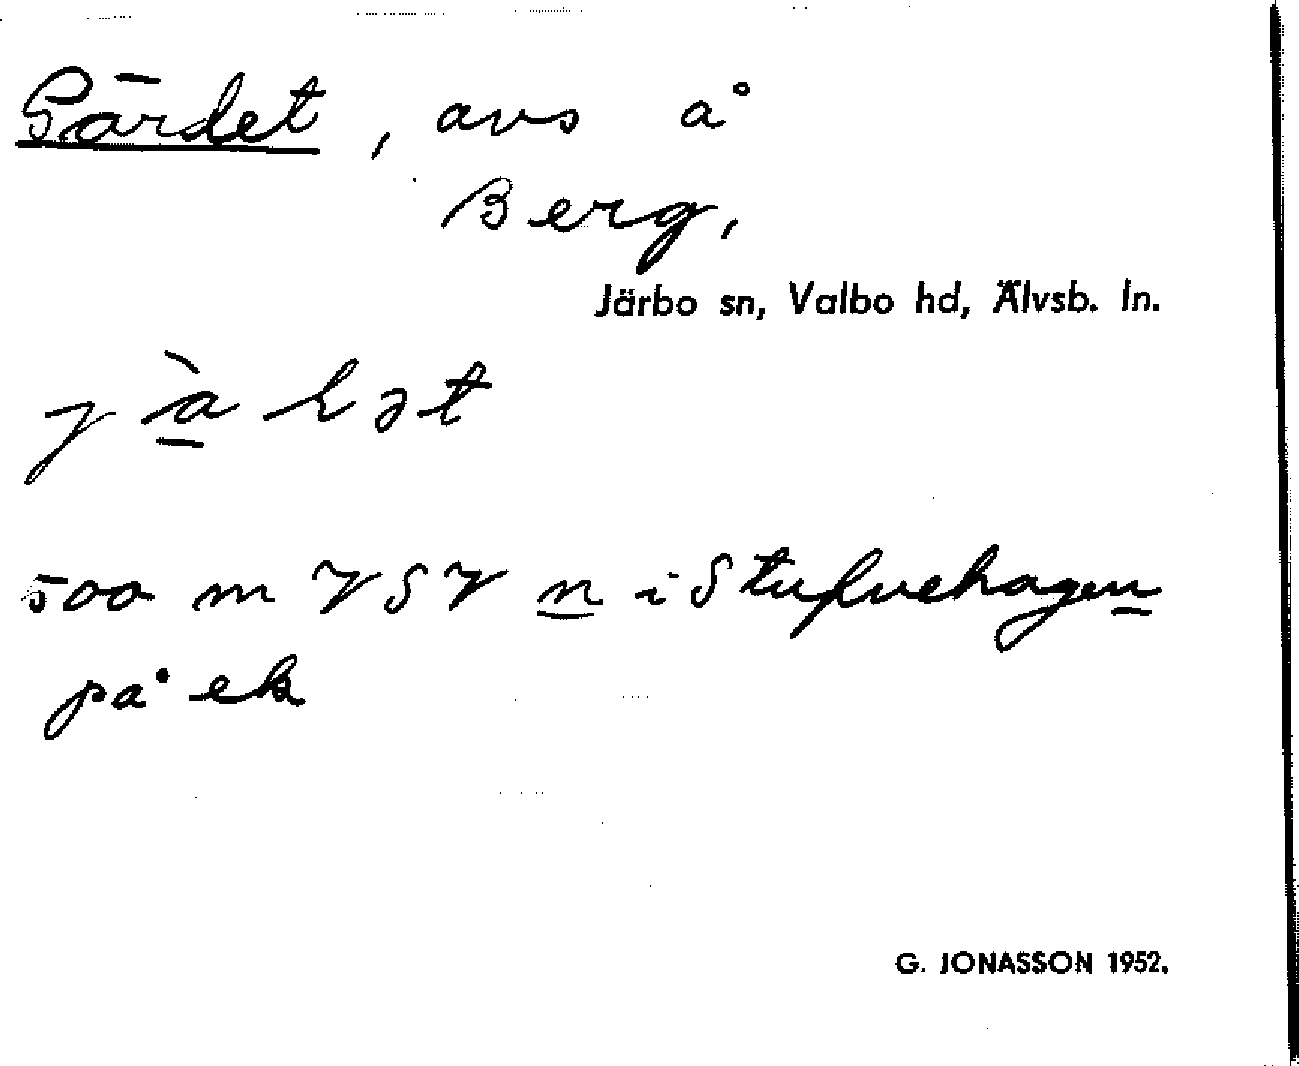 Gärdet, avs å
Berg,
Järbo sn, Valbo hd, Älvsb. ln.
500 m VSV n i Stufvehagen
på ek
G. JONASSON 1952.